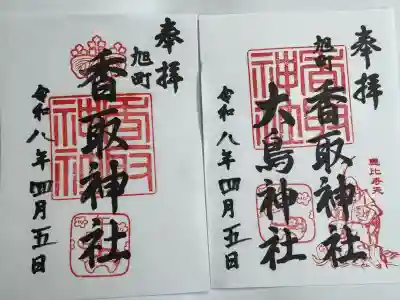 奉拝
旭町
香取神社
令和八年四月五日
香取神社
奉拝
旭町
香取神社
大鳥神社
令和八年四月五日
恵比寿天